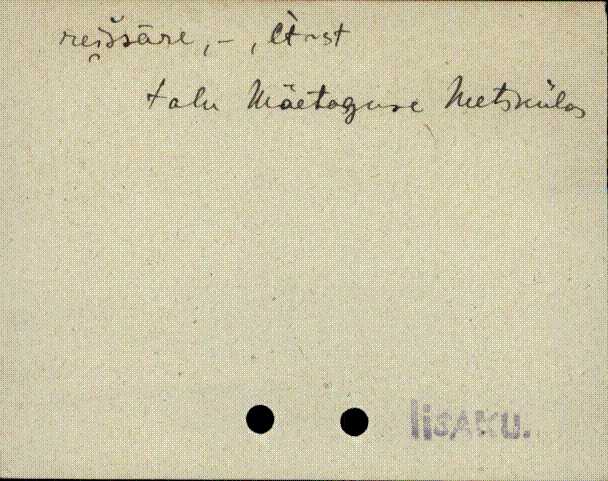 reišsāre, – , èt̀ʌst
talu Mäetaguse Metskülas
IisAKU.